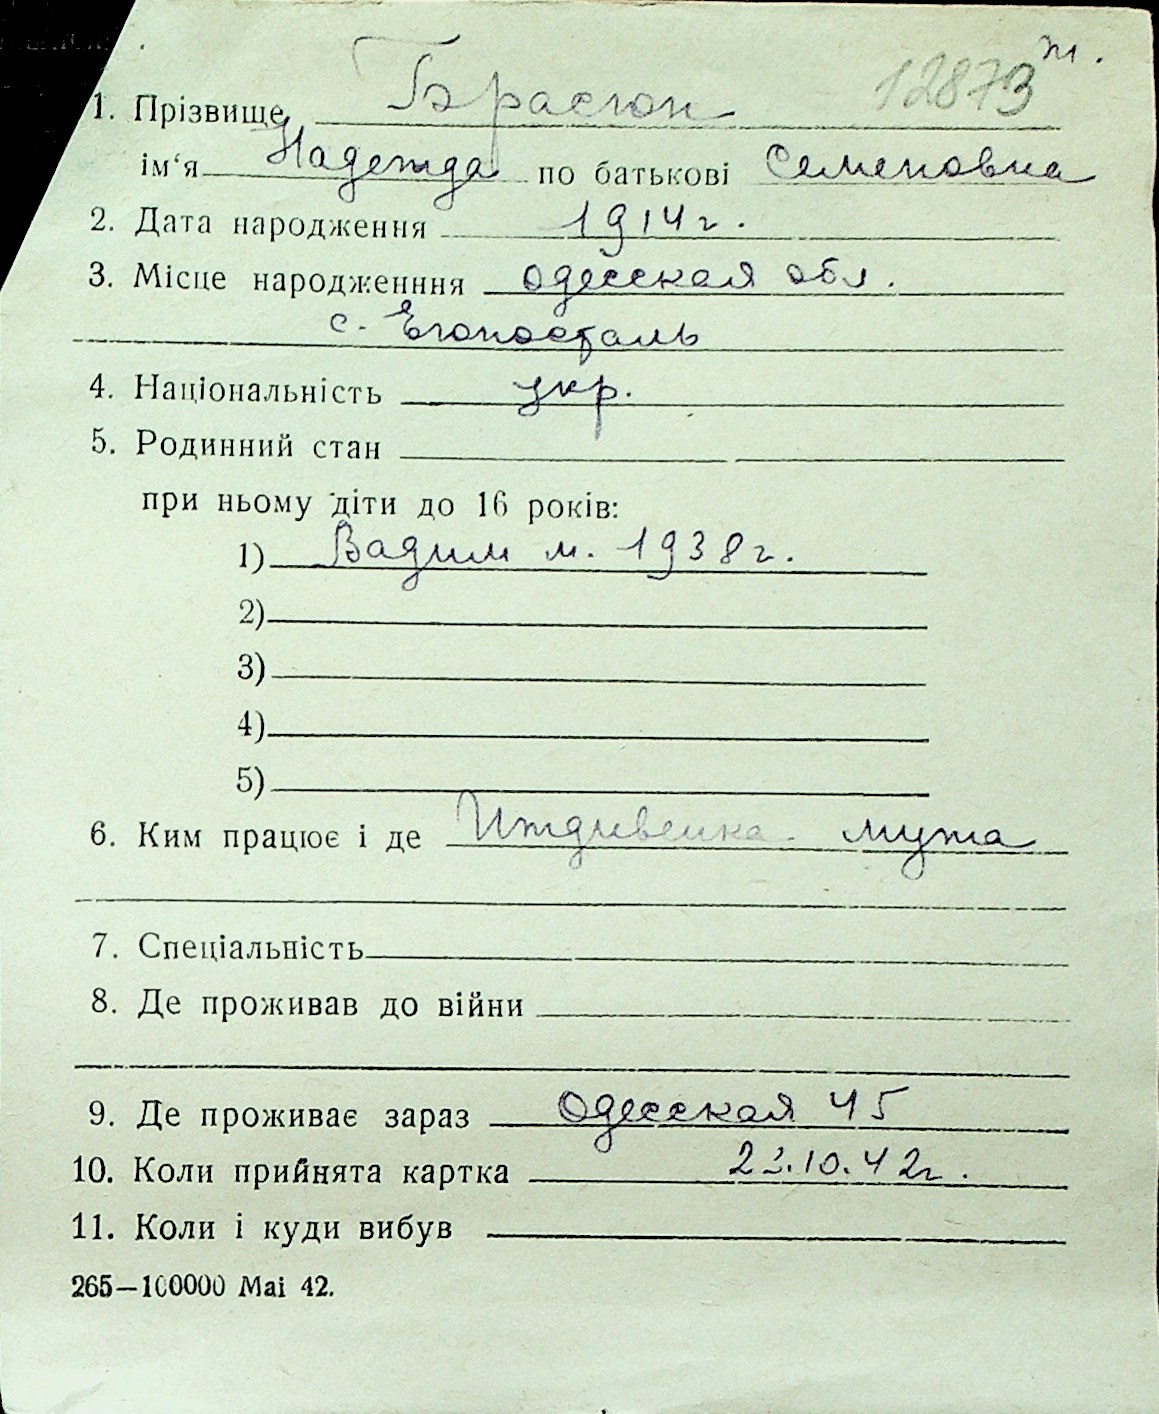 12873 ж.
1. Прізвище Брасюк
ім‘я Надежда по батькові Семеновна
2. Дата народження 1914 г.
3. Місце народженння Одесская обл.
с.
4. Національність укр.
5. Родинний стан
при ньому діти до 16 років:
1) Вадим м. 1938 г.
2)
3)
4)
5)
6. Ким працює і де Иждивенка мужа
7. Спеціальність
8. Де проживав до війни
9. Де проживає зараз Одесская 45
10. Коли прийнята картка 23.10.42 г.
11. Коли і куди вибув
265—100000 Mai 42.